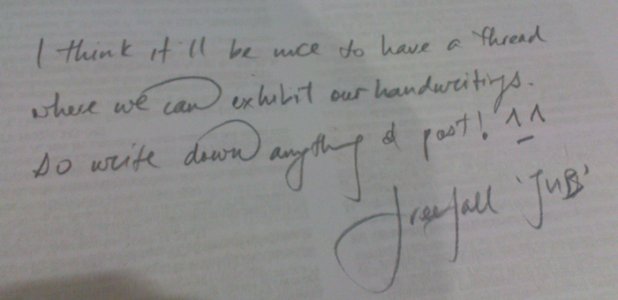 I think it'll be nice to have a thread
where we can exhibit our handwritings.
so write down anything & post! ^_^
freefall 'JUB'